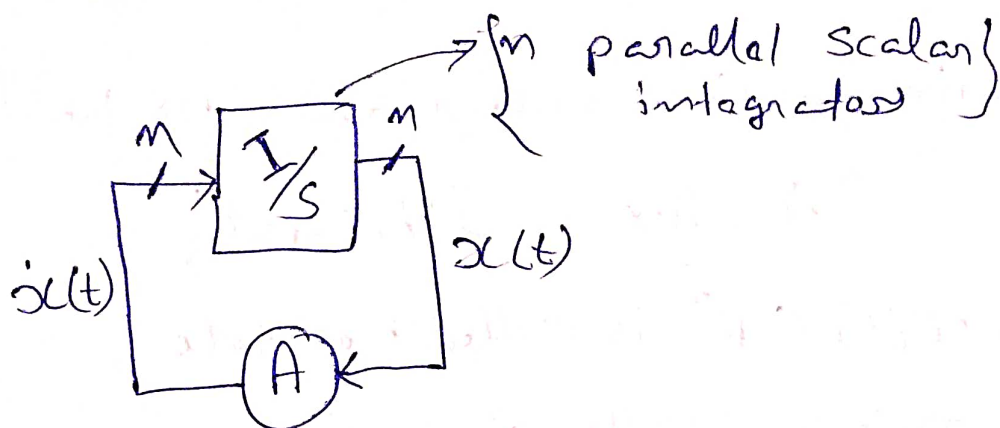 {n parallel scalar}
integrators
n
I/s
n
ẋ(t)
x(t)
A